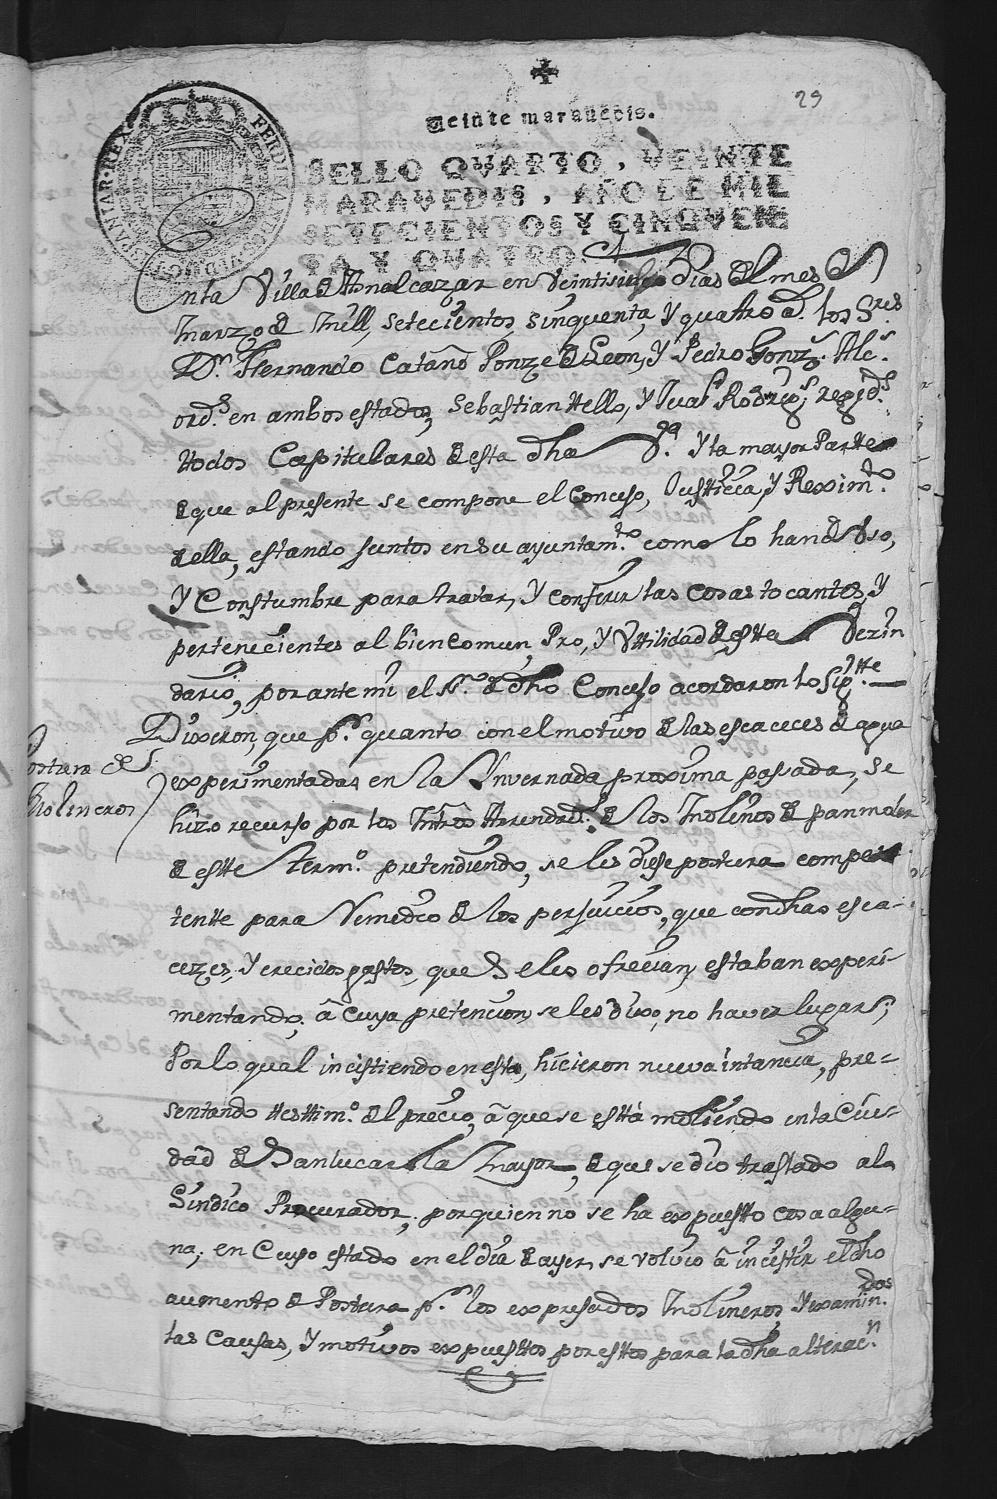 29
Veinte maravedis.
SELLO QVARTO, VEINTE
MARAVEDIS, AÑO DE MIL
SETECIENTOS Y CINQVEN
TA Y QUATRO.
HISPANIAR·REX FERDINANDUS VI D G
Enla Villa de Aznalcazar en Veintisiete dias del mes de
Marzo de mill, setecientos, sinquenta, y quattro a.s los S.res
D.n Fernando Cataño Ponze de Leon, y Pedro Gonz.s Alc.s
ord.s en ambos estados, Sebastian Vello, y Juan Rodrig.s regid.s
ttodos Capitulares de esta dha V.a y la mayor Parte
de que al presente se compone el Concejo, Justicia, y Rexim.to
della, estando juntos en su ayuntam.to como lo han de Uso,
y Constumbre para tratar, y conferir las cosas tocantes, y
pertenecientes al bien comun, Pro, y Uttilidad de estta Vezin
dario, por ante mi el ss.no de dho Concejo acordaron lo sig.tte
Dixeron, que p.r quanto con el motivo de las escaceces de agua
Postura de
Molineros
experimentadas en la Ynvernada proxima pasada, se
hizo recurso por los Mros Arrendad.s de los Molinos de pan moler
de estte Term.o pretendiendo, se les diese postura compe-
tentte para Remedio de los perjuicios, que con dhas esca-
cezes, y crecidos gastos, que se les ofrecian, estaban experi-
mentando; à cuya pretencion, se les dixo, no haver lugar;
Por lo qual incistiendo en esta, hicieron nueva intancia, pre-
sentando ttesttim.o del precio, à que se està moliendo en la Ciu-
dad de Sanlucar la mayor, de que se dio traslado al
Sindico Procurador, por quien no se ha expuestto cosa algu-
na; en Cuyo estado en el dia de ayer, se volvio à incistir el dho
aumento de Postura p.r los expresados Molineros, y examin.dos
las causas, y motivos expuesttos por esttos para la dha alterac.n